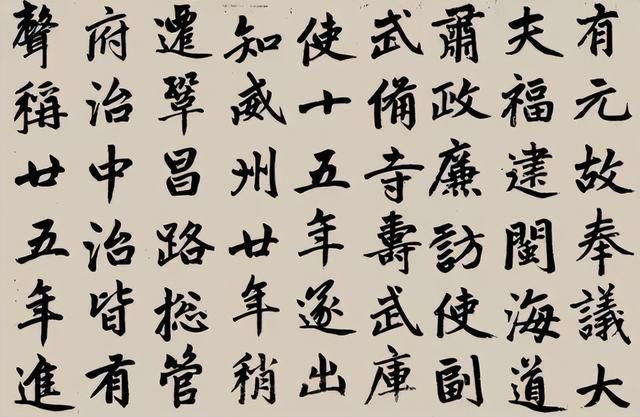 有元故奉議大
夫福建閩海道
肅政廉訪使副
武備寺壽武庫
使十五年遂出
知威州廿年稍
遷鞏昌路総管
府治中治皆有
聲稱廿五年進